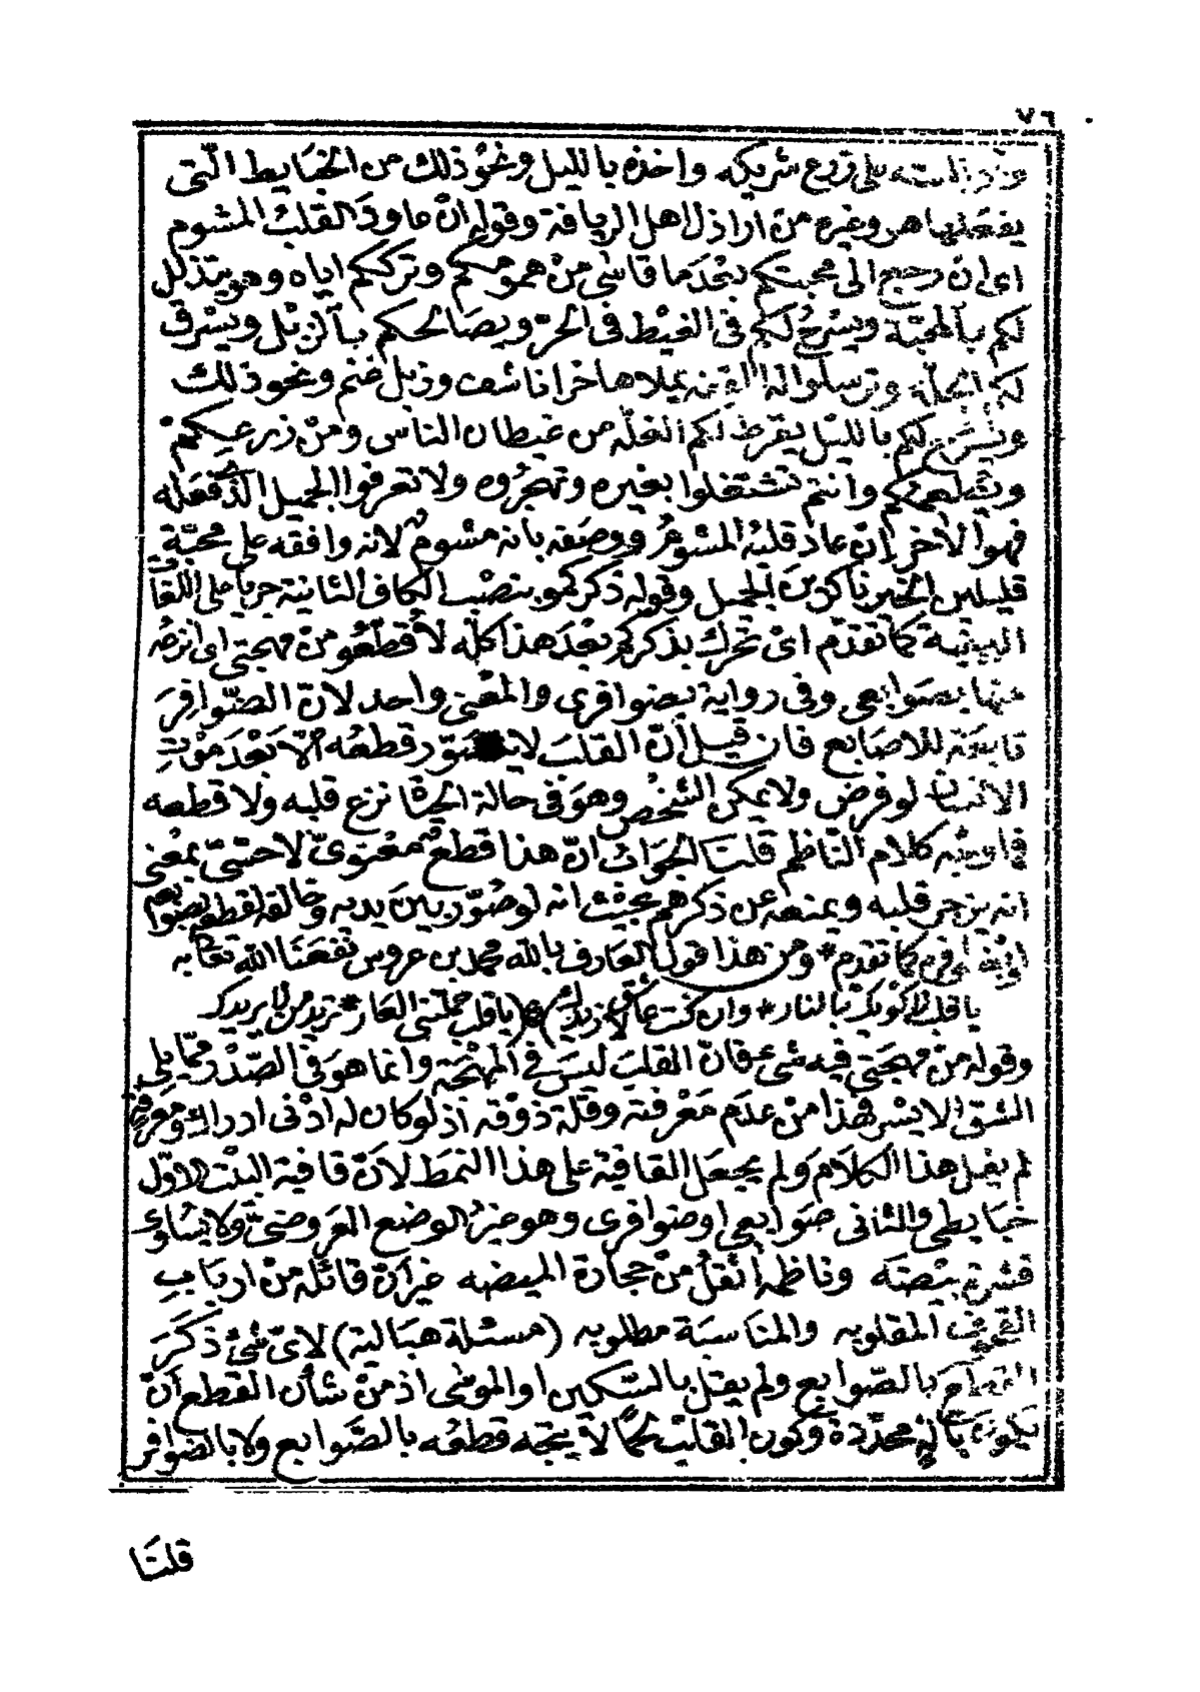 ٧٦
على زرع شريكه واخذه بالليل ونحو ذلك من الخبايط التى
يفعلها هو وغيره من اراذل اهل الريافة وقوله ان عاود القلب المشوم
اى ان رجع الى محبتكم بعد ما قاسى من همومكم وترككم اياه وهو يتذلل
لكم بالمحبة ويسرح لكم فى الغيط فى الحر ويصالحكم بالزبل ويسرق
لكم الجلة وترسلوا له القفنه يملاها خرا ناشف وزبل غنم ونحو ذلك
ويسرح لكم بالليل يقرط لكم الغلّه من غيطان الناس ومن زرعكم
ويطعمكم وانتم تشتغلوا بغيره وتهجروه ولا تعرفوا الجميل الذى فعله
فهو الاخر ان عاد قلبه المشوم ووصفه بانه مشوم لانه وافقه على محبة
قليلين الخير ناكرين الجميل وقوله ذكركمو بنصب الكاف الثانية جريا على اللغا
البيية كما تقدم اى تحرك بذكركم بعد هذا كله لاقطعو من مهجتى اى انزعه
منها بصوابعى وفى رواية بضوافرى والمعنى واحد لان الضوافر
تابعة للاصابع فان قيل ان القلب لا يتصور قطعه الا بعد موت
الانسان لو فرض ولا يمكن الشخص وهو فى حالة الحياة نزع قلبه ولا قطعه
فما وجه كلام الناظم قلنا الجواب ان هذا قطع معنوى لا حسّى بمعنى
انه يزجر قلبه ويمنعه عن ذكرهم بحيث انه لو صوّر بين يديه وخالفه لقطعه بصوابعه
او بضوافره كما تقدم * ومن هذا قول العارف بالله محمد بن عروس نفعنا الله تعالى به
يا قلب لاكويك بالنار * وان كنت عاشق لازيدك * يا قلب حملتنى العار * تريد من لا يريدك
وقوله من مهجتى فيه شى عرفان القلب ليس فى المهجة وانما هو فى الصدر مما يلى
الشق الايسر هذا من عدم معرفته وقلة ذوقه اذ لو كان له ادنى ادراك ومعرفة
لم يقل هذا الكلام ولم يجعل القافية على هذا النمط لان قافية البيت الاول
خبايطى والثانى صوابعى او ضوافرى وهو حيز الوضع العروضى ولا يساوى
قشرة بيضه وناظمه اثقل من حجارة الميضه غير ان قائله من ارباب
القحوف المقلوبه والمناسبة مطلوبه (مسئلة هبالية) لاى شئ ذكر
القطع بالصوابع ولم يقل بالسكين او الموسى اذ من شأن القطع ان
يكون بآلة محددة وكون القلب لحما لا يتجه قطعه بالصوابع ولا بالضوافر
قلنا